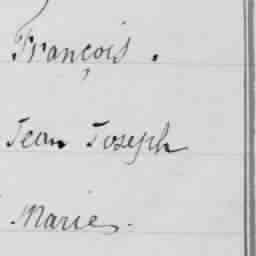 François.
Jean Joseph
Marie.